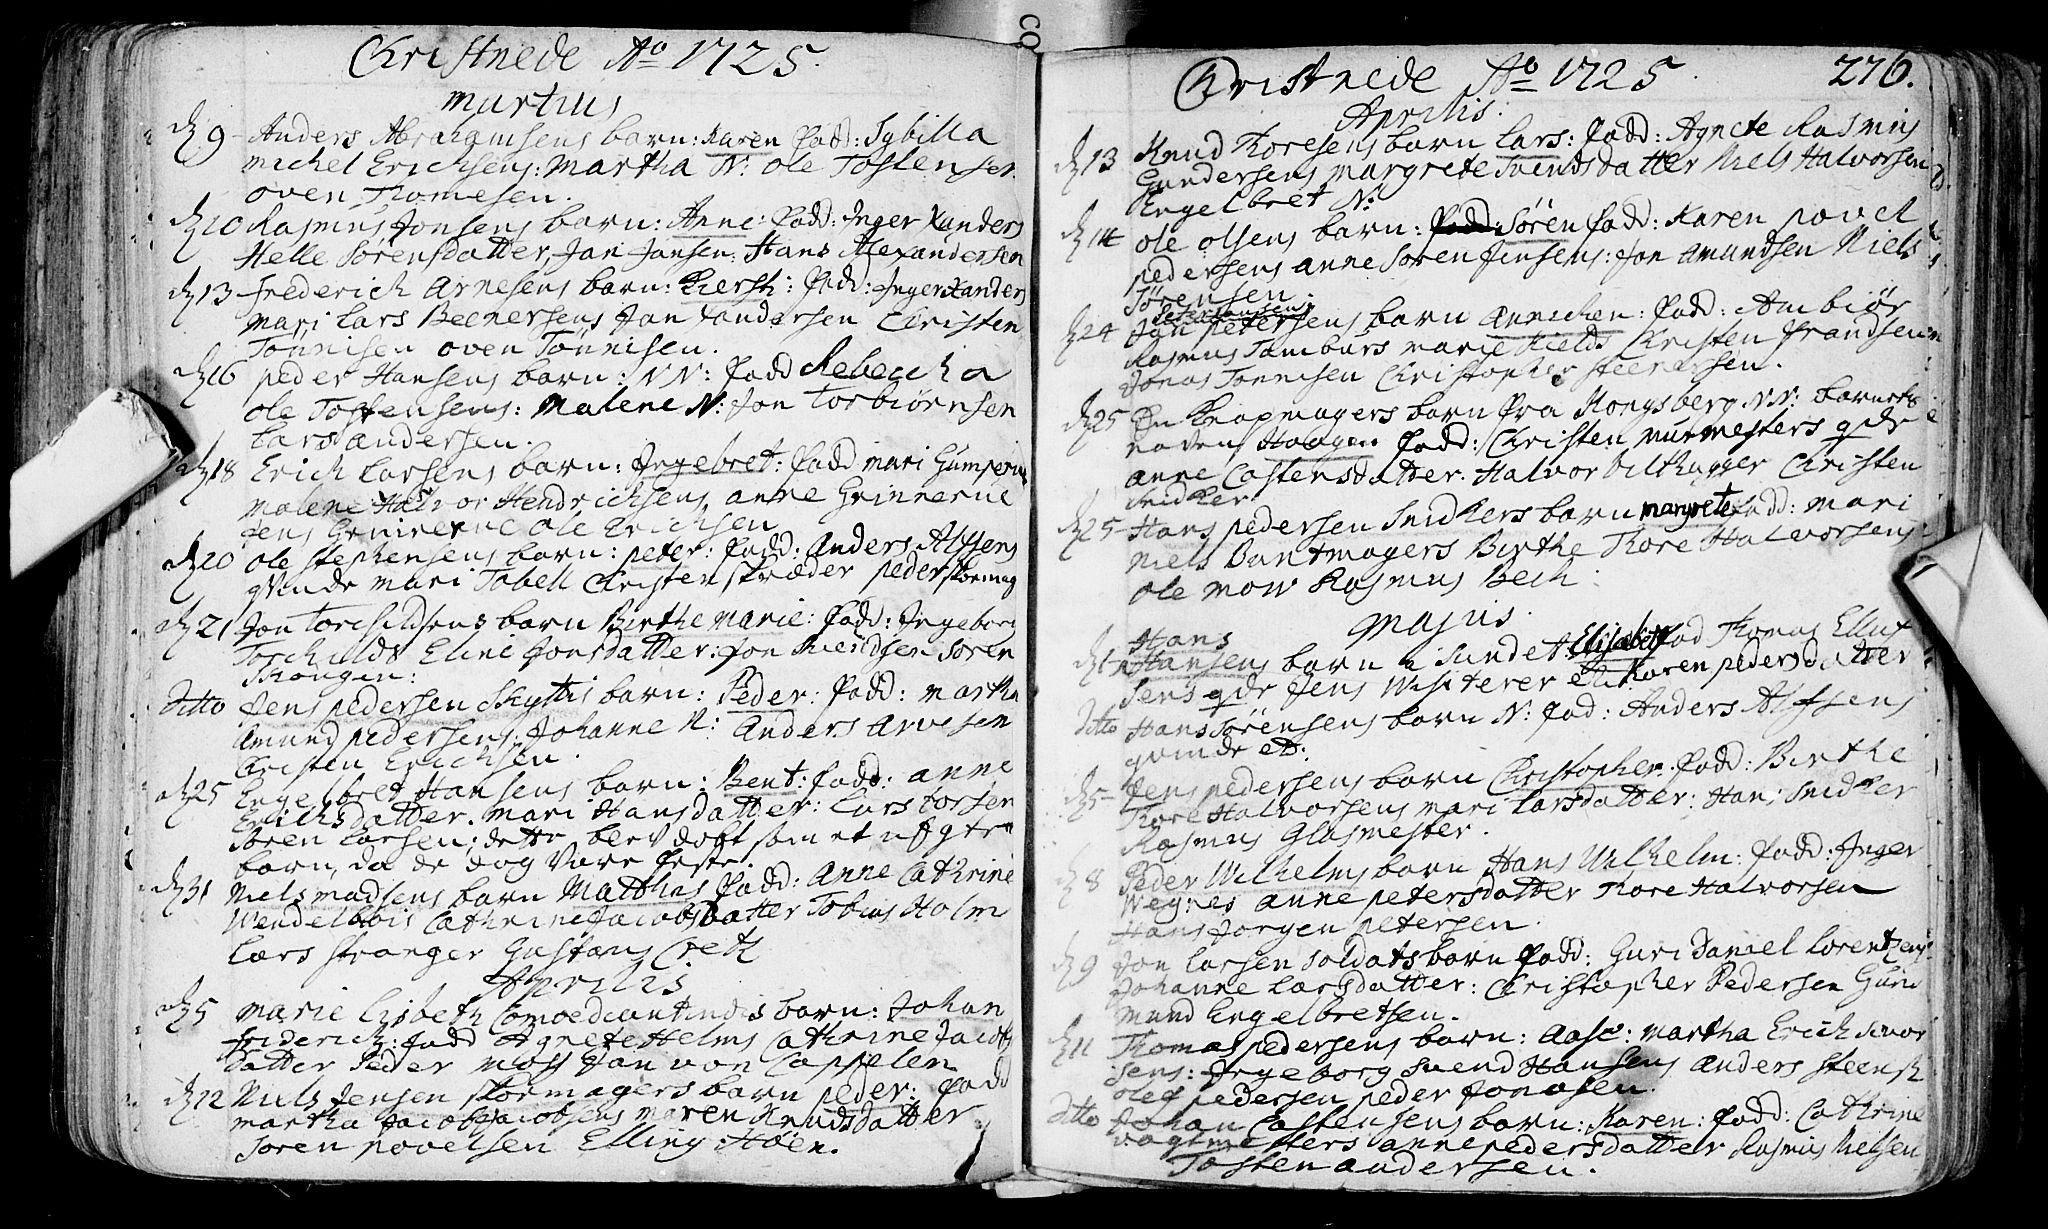 Christnede Ao 1725.
Martius
D 9 Anders Abrahamsens barn: Karen Fadd: Sybilla
Michel Erichsens: Martha N: Ole Tostensen
Oven Thomesen.
D 10 Rasmus Jonsens barn: Anne: Fadd: Inger Xanders
Helle Sörensdatter, Jan Jansen: Hans Alexandersen
D 13 Frederich Arnesens barn: Kersti: Fadd: Inger Xanders
Mari Lars Beenersens Jan Xandersen Christen
Tönnisen Oven Tönnisen.
D 16 Peder Hansens barn: NN: Fadd Rebecka
Ole Tostensens: Malene N: Jon Torbiörnsen
Lars Andersen.
D 18 Erich Larsens barn: Ingebret: Fadd Mari
Malene Halvor Hendrichsens, Anne Grinnerne
Jens Ole Erichsen
D 20 Ole Stephensens barn: Peter: Fadd: Anders Alfsens
qvinde Mari Tabell Christen Skræder Peder Skomag
D 21 Jon Torchildsens barn Birthe Marie: Fadd: Ingeborg
Torchilds Eline Jonsdatter: Jon Svendsen Sören
Throngen:
Ditto Jens Pedersen Skyttis barn: Peder: Fadd: Martha
Amund Pedersens, Johanne N: Anders Arvesen
Christen Erichsen.
D 25 Engelbret Hansens barn: Bent: Fadd: Anne
Erichsdatter. Mari Hansdatter: Lars Lorsen
Sören Larsen: dette blev döbt som et uegte
barn, da de dog vare
D 31 Niels Madsens barn Matthis Fadd: Anne Cathrine
Wendelbois Cathrine Jacobsdatter Tobias Holm
Lars Stranger Gustavs Creti
Aprilis
D 5 Marie Lisbeth Comoediantindis barn: Johan
Friderich: Fadd Agnete Helms Cathrine Jacobs
datter Peder Moss Jan von Cappelen
D 12 Niels Jensen Skomagers barn Peder: Fadd
Martha Jacob Jacobsens Maren Knudsdatter
Sören Povelsen Elling Höen.
Christnede Ao 1725. 276.
Aprilis:
D 13 Knud Thoresens barn Lars: Fadd: Agnete Rasmus
Gundersens Margrete Svendsdatter Niels Halvorsen
Engelbret N:
D 14 Ole Olsens barn: Fadd: Sören Fadd: Karen Povel
Pedersens Anne Sören Jensens: Jon Amundsen Niels
Sörensen.
Peter Jansens
D 24 Jan Petersens barn Annichen: Fadd: Ambiör
Rasmus Tamburs Marie Kields Christen Frandsen
Jonas Tönnisen Christopher Steenersen.
D 25 En Knapmagers barn fra Kongsberg NN: barnets
navn Haagen Fadd: Christen Murmesters qde
Anne Castensdatter. Halvor Bilthugger Christen
Snidker
D 25 Hans Pedersen Snidkers barn Margrete Fadd: Mari
Niels Buntmagers Birthe Thore Halvorsens
Ole Mow Rasmus Bech.
Majus.
Hans
D 1 Hansens barn i Sundet Elisabeth Fad Thomas Ellef
sens qde Jens Visiterer Karen Pedersdatter
Ditto Hans Sörensens barn N: Fad: Anders Alfsens
qvinde etc.
D 5 Jens Pedersens barn Christopher. Fadd: Birthe
Thore Halvorsens Mari Larsdatter: Hans Snidker
Rasmus Glasmester.
D 8 Peder Wilhelms barn Hans Wilhelm: Fadd: Inger
Wegnes Anne Petersdatter Thore Halvorsen
Hans Jörgen Petersen.
D 9 Jon Larsen Soldats barn Fadd: Guri Daniel Lorentzens
Johanne Larsdatter: Christopher Pedersen Gun
mund Engelbretsen.
D 11 Thomas Pedersens barn: Aase: Martha Erich Sivor
sens: Ingeborg Svend Hansens Anders Steensk
Olef Pedersen Peder Jonasen.
Ditto Johan Castensens barn: Karen: Fadd: Cathrine
Vagtmesters Anne Pedersdatter Rasmus Nielsen
Tosten Andersen.